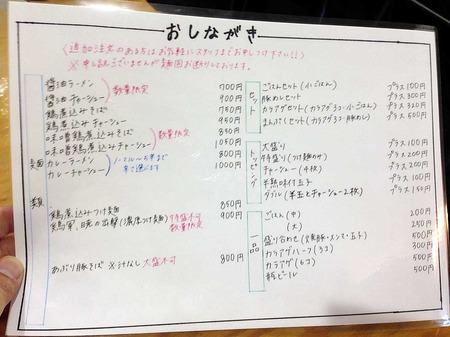 おしながき
(追加注文のある方はお気軽にスタッフまでお申しつけ下さい!!)
※申し訳ございませんが麺固お断りしております。
麺類
醤油ラーメン 700円
醤油チャーシュー 900円
数量限定
鶏煮込みそば 750円
鶏煮込みチャーシュー 950円
味噌鶏煮込みそば 850円
味噌鶏煮込みチャーシュー 1050円
数量限定
カレーラーメン 800円
カレーチャーシュー 1000円
鶏煮込みつけ麺 850円
鶏軍、暁の出撃(濃厚つけ麺) 900円
特盛不可
数量限定
あぶり豚そば ※汁なし 大盛不可 800円
セット
ごはんセット(小ごはん) プラス100円
豚めしセット プラス300円
カラアゲセット(カラアゲ3コ・小ごはん) プラス320円
まんぷくセット(カラアゲ3コ・豚めし) プラス500円
トッピング
大盛り プラス100円
特盛り(つけ麺のみ) プラス150円
チャーシュー(4枚) プラス200円
半熟味付玉子 プラス100円
ダブル(半玉とチャーシュー2枚) プラス150円
一品
ごはん(中) 200円
(大) 250円
盛り合わせ(煮豚・メンマ・玉子) 500円
カラアゲハーフ(3コ) 300円
カラアゲ(6コ) 500円
瓶ビール 500円